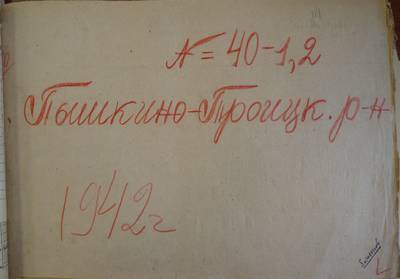 N = 40-1,2
Пышкино-Троицк. р-н
1942 г